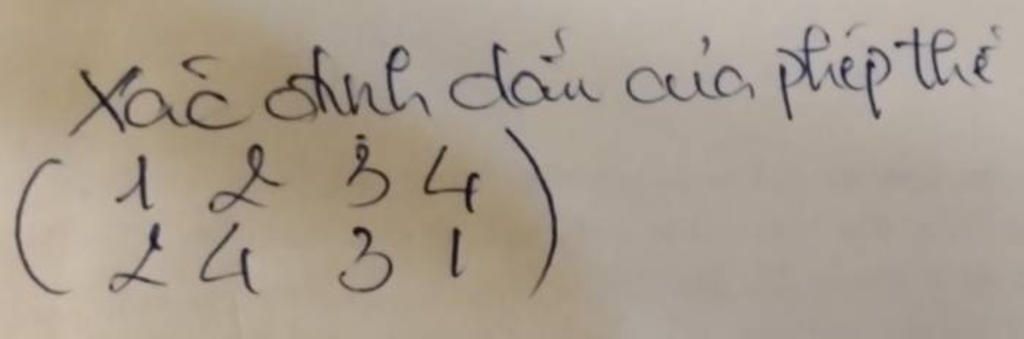 Xác định dấu của phép thế
( 1 2 3 4 )
( 2 4 3 1 )